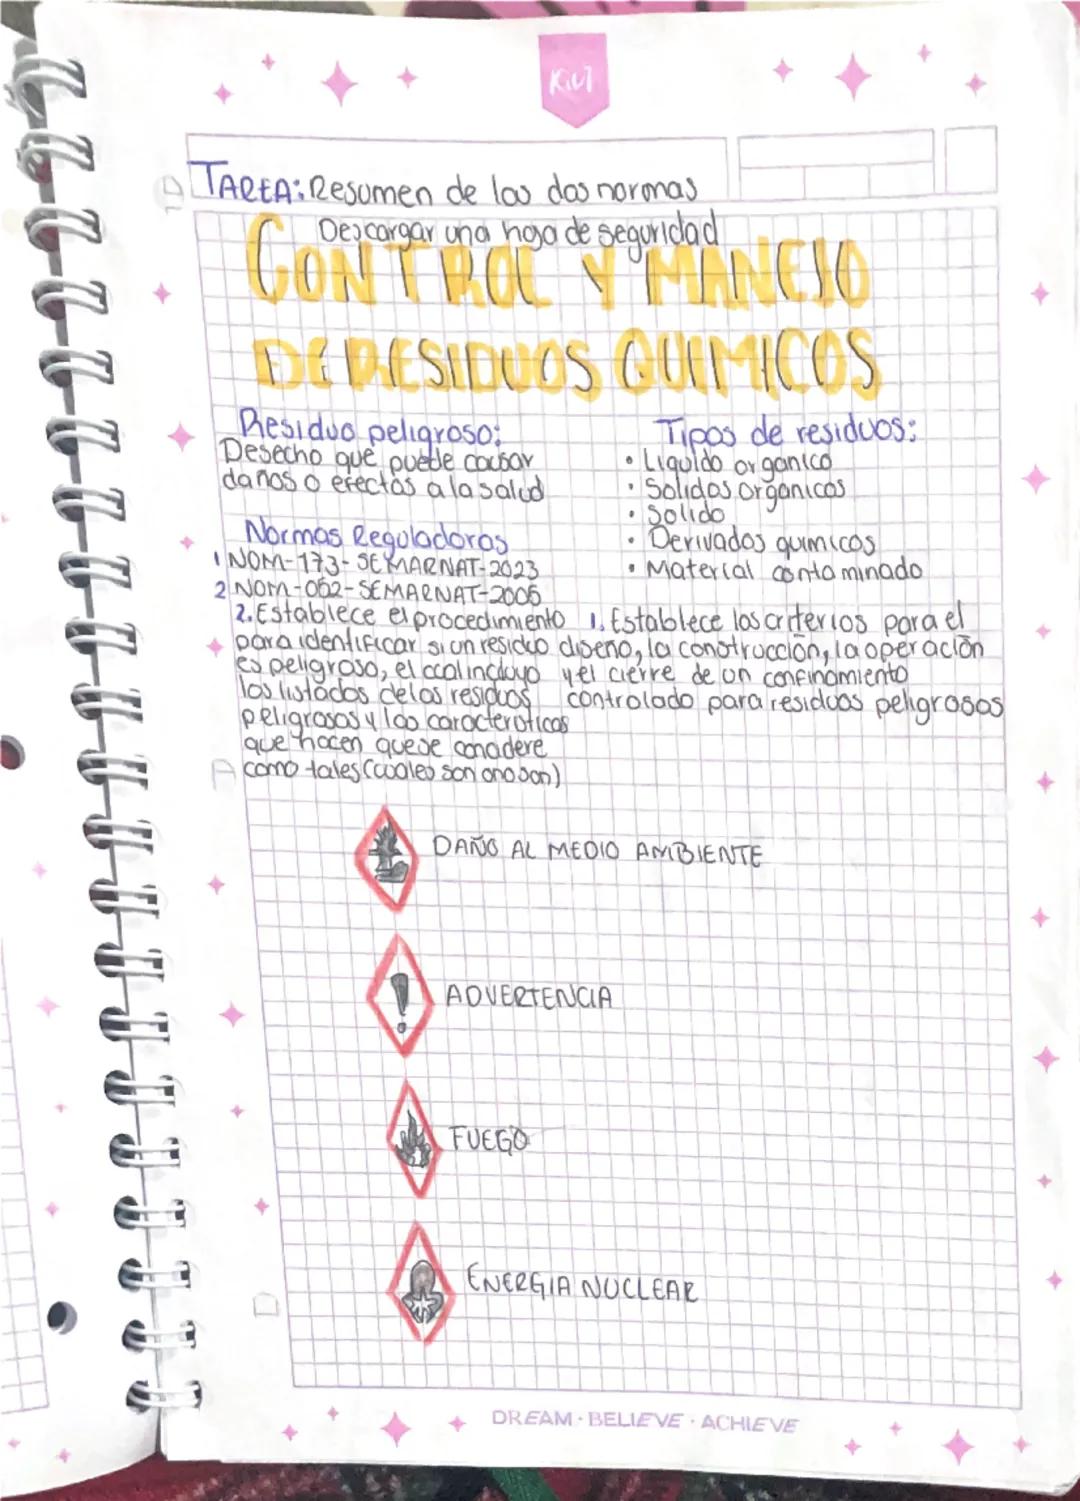 Kiut
TAREA: Resumen de las dos normas
Descargar una hoja de seguridad
CONTROL Y MANEJO
DE RESIDUOS QUIMICOS
Residuo peligroso:
Desecho que puede causar
daños o efectos a la salud
Tipos de residuos:
• Liquido organico
• Solidos organicos
• Solido
• Derivados quimicos
• Material contaminado
Normas Reguladoras
1 NOM-173-SEMARNAT-2023
2 NOM-052-SEMARNAT-2005
2. Establece el procedimiento
para identificar si un residuo
es peligroso, el cual incluye
los listados de los residuos
peligrosos y las caracteristicas
que hacen que se considere
como tales (cuales son o no son)
1. Establece los criterios para el
diseño, la construcción, la operación
y el cierre de un confinamiento
controlado para residuos peligrosos
DAÑO AL MEDIO AMBIENTE
ADVERTENCIA
FUEGO
ENERGIA NUCLEAR
DREAM · BELIEVE · ACHIEVE